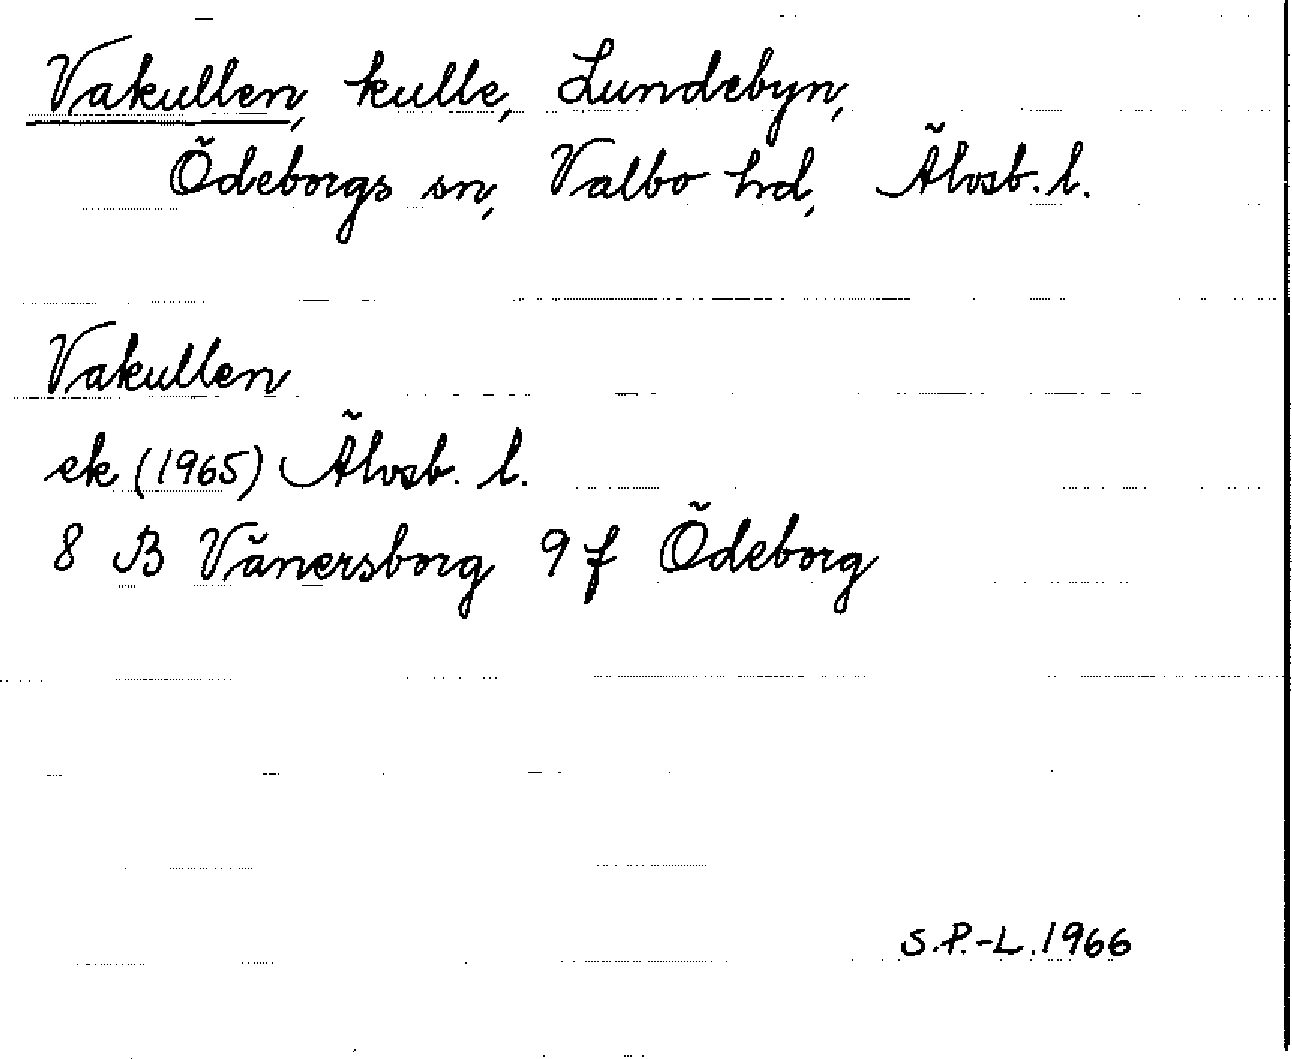 Vakullen, kulle, Lundebyn,
Ödeborgs sn, Valbo hd, Älvsb. l.
Vakullen
ek (1965) Älvsb. l.
8 B Vänersborg 9 f Ödeborg
S.P.-L. 1966